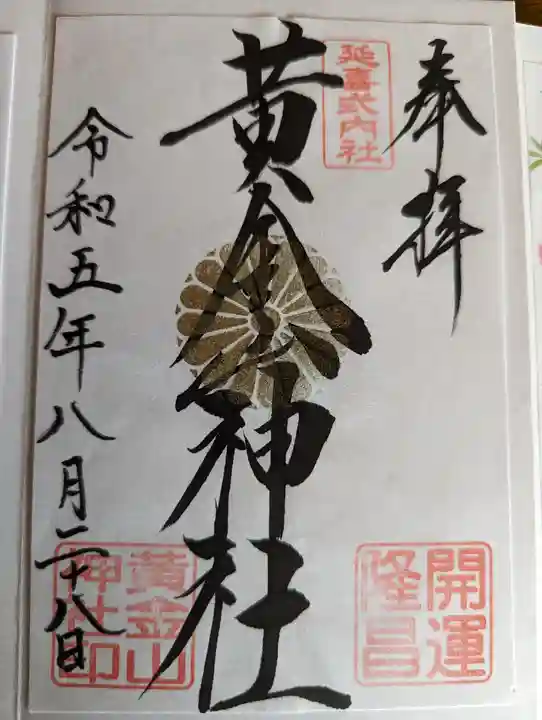 奉拝
延喜式内社
黄金山神社
令和五年八月二十八日
開運
隆昌
黄金山
神社印